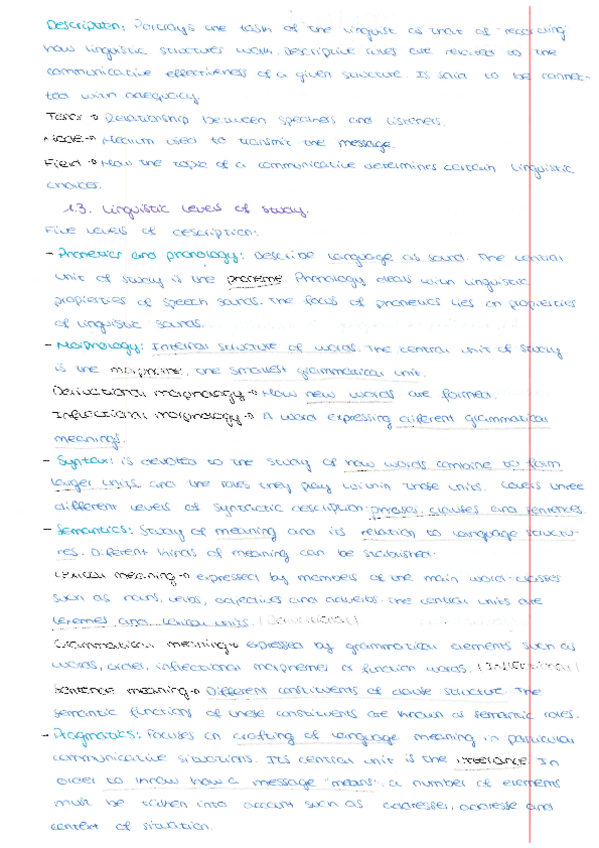 Description: Portrays the task of the linguist as that of recording
how linguistic structures work. Descriptive rules are related to the
communicative effectiveness of a given structure. Is said to be connec-
ted with adequacy.
Tenor → Relationship between speakers and listeners.
Mode → Medium used to transmit the message.
Field → How the topic of a communicative determines certain linguistic
choices.
1.3. Linguistic levels of study.
Five levels of description:
- Phonetics and phonology: Describe language as sound. The central
unit of study is the phoneme. Phonology deals with linguistic
properties of speech sounds. The focus of phonetics lies on properties
of linguistic sounds.
- Morphology: Internal structure of words. The central unit of study
is the morpheme, the smallest grammatical unit.
Derivational morphology → How new words are formed.
Inflectional morphology → A word expressing different grammatical
meanings.
- Syntax: is devoted to the study of how words combine to form
larger units, and the roles they play within those units. Covers three
different levels of syntactic description: phrases, clauses and sentences.
- Semantics: Study of meaning and its relation to language structu-
res. Different kinds of meaning can be stablished:
Lexical meaning → expressed by members of the main word-classes
such as nouns, verbs, adjectives and adverbs. The central units are
lexemes and lexical units. (Derivational)
Grammatical meaning → expressed by grammatical elements such as
words, order, inflectional morphemes or function words. (Inflectional)
Sentence meaning → Different constituents of clause structure. The
semantic functions of these constituents are known as semantic roles.
- Pragmatics: Focuses on crafting of language meaning in particular
communicative situations. Its central unit is the utterance. In
order to know how a message "means", a number of elements
must be taken into account such as addresser, addresse and
context of situation.